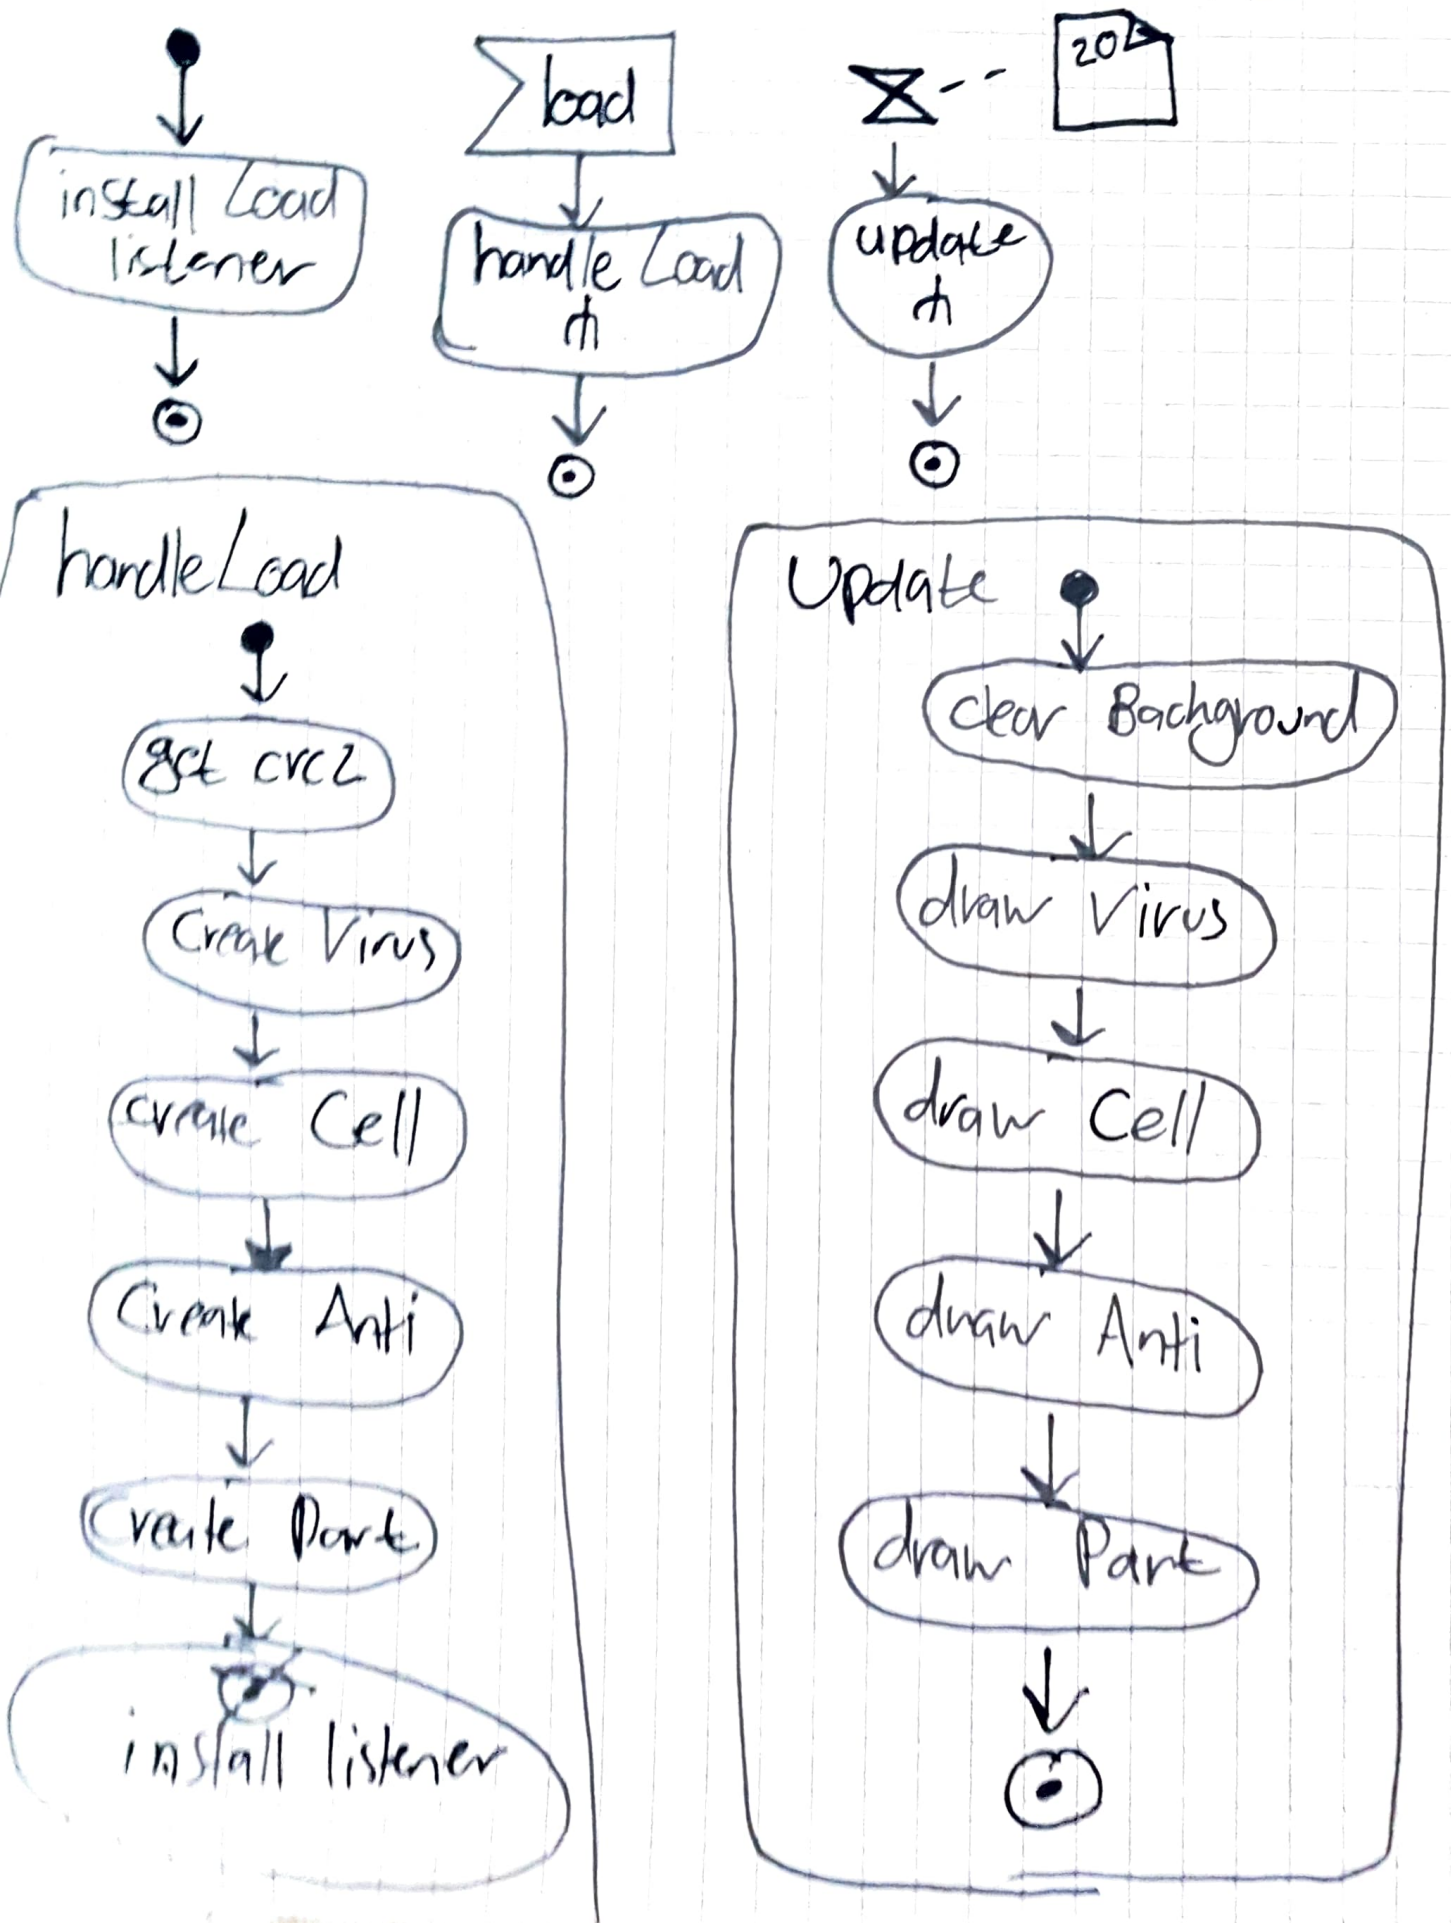 install Load
listener
load
handle Load
20
update
handleLoad
get crc2
Create Virus
create Cell
Create Anti
Create Part
install listener
Update
clear Background
draw Virus
draw Cell
draw Anti
draw Part